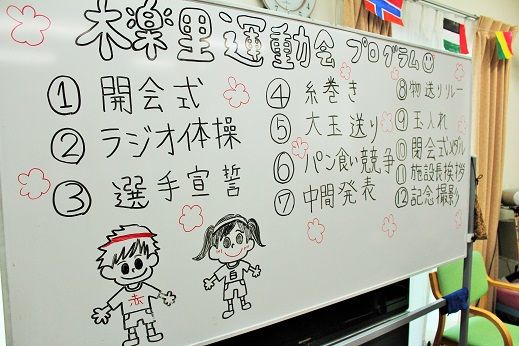 木楽里運動会 プログラム
① 開会式
② ラジオ体操
③ 選手宣誓
④ 糸巻き
⑤ 大玉送り
⑥ パン食い競争
⑦ 中間発表
⑧ 物送りリレー
⑨ 玉入れ
⑩ 閉会式メダル
⑪ 施設長挨拶
⑫ 記念撮影
赤
白